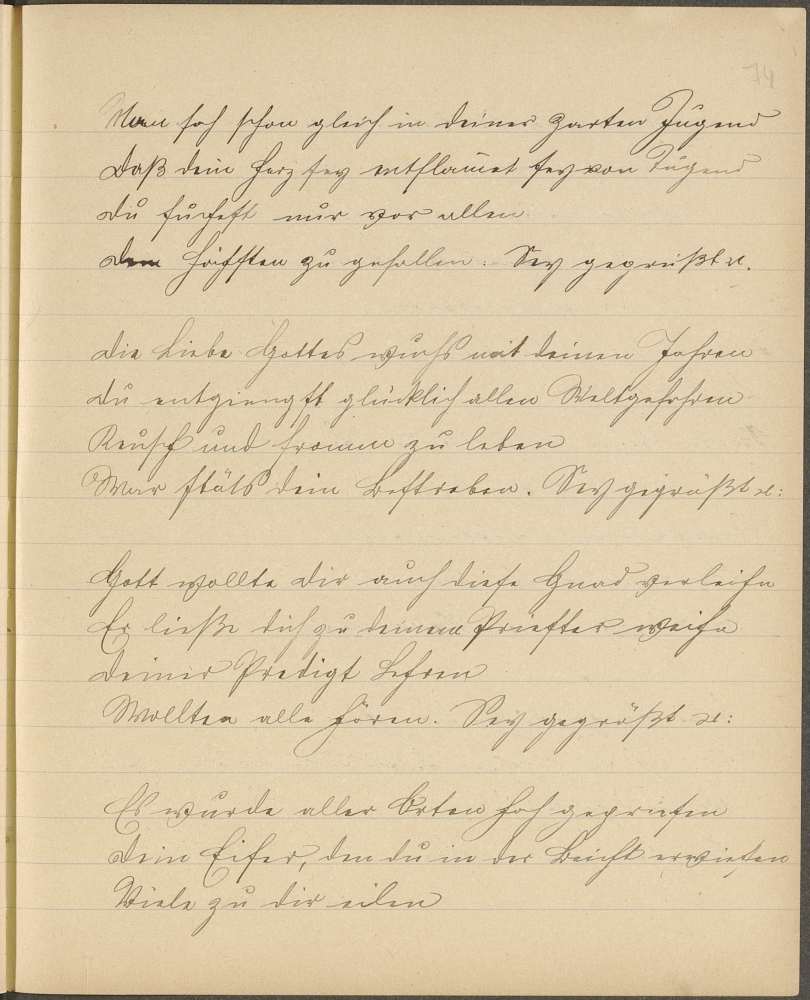 74
Man sah schon gleich in deiner zarten Jugend
Daß dein Herz sey entflamet sey von Tugend
Du suchest nur vor allen
Dem Höchsten zu gefallen: Sey gegrüßt ꝛc.
Die Liebe Gottes wuchs mit deinen Jahren
Du entgiengst glücklich allen Weltgefahren
Keusch und fromm zu leben
War stäts dein Bestreben. Sey gegrüßt ꝛc:
Gott wollte dir auch diese Gnad verleihn
Er ließe dich zu deinem Priester weihn
Deiner Predigt Lehren
Wollten alle hören. Sey gegrüßt ꝛc:
Es wurde aller Orten hoch gepriesen
Dein Eifer, den du in der Beicht erwiesen
Viele zu dir eilen